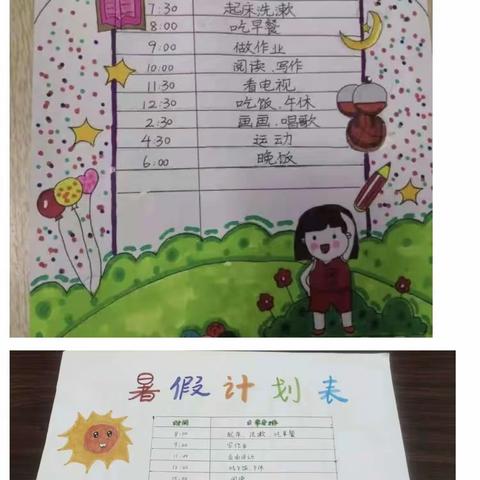 7:30 起床洗漱
8:00 吃早餐
9:00 做作业
10:00 阅读、写作
11:30 看电视
12:30 吃饭、午休
2:30 画画、唱歌
4:30 运动
6:00 晚饭
暑假计划表
时间 日常安排
8:00 起床、洗漱、吃早餐
9:00 写作业
11:00 自由活动
12:00 吃午饭、午休
阅读